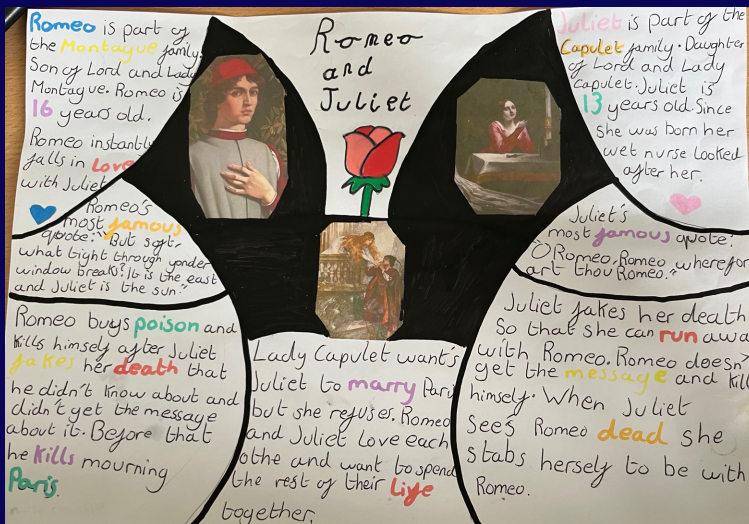 Romeo is part of
the Montague family.
Son of Lord and Lady
Montague. Romeo is
16 years old.
Romeo instantly
falls in love
with Juliet
Romeo's
most famous
quote: "But soft,
what light through yonder
window breaks? It is the east
and Juliet is the sun."
Romeo buys poison and
kills himself after Juliet
fakes her death that
he didn't know about and
didn't get the message
about it. Before that
he kills mourning
Paris.
Romeo
and
Juliet
Lady Capulet want's
Juliet to marry Pari
but she refuses. Romeo
and Juliet love each
othe and want to spend
the rest of their life
together.
Juliet is part of the
Capulet family. Daughter
of Lord and Lady
Capulet. Juliet is
13 years old. Since
she was born her
wet nurse looked
after her.
Juliet's
most famous quote:
"O Romeo, Romeo, wherefor
art thou Romeo."
Juliet fakes her death
So that she can run awa
with Romeo. Romeo doesn't
get the message and kill
himself. When Juliet
see's Romeo dead she
stabs herself to be with
Romeo.